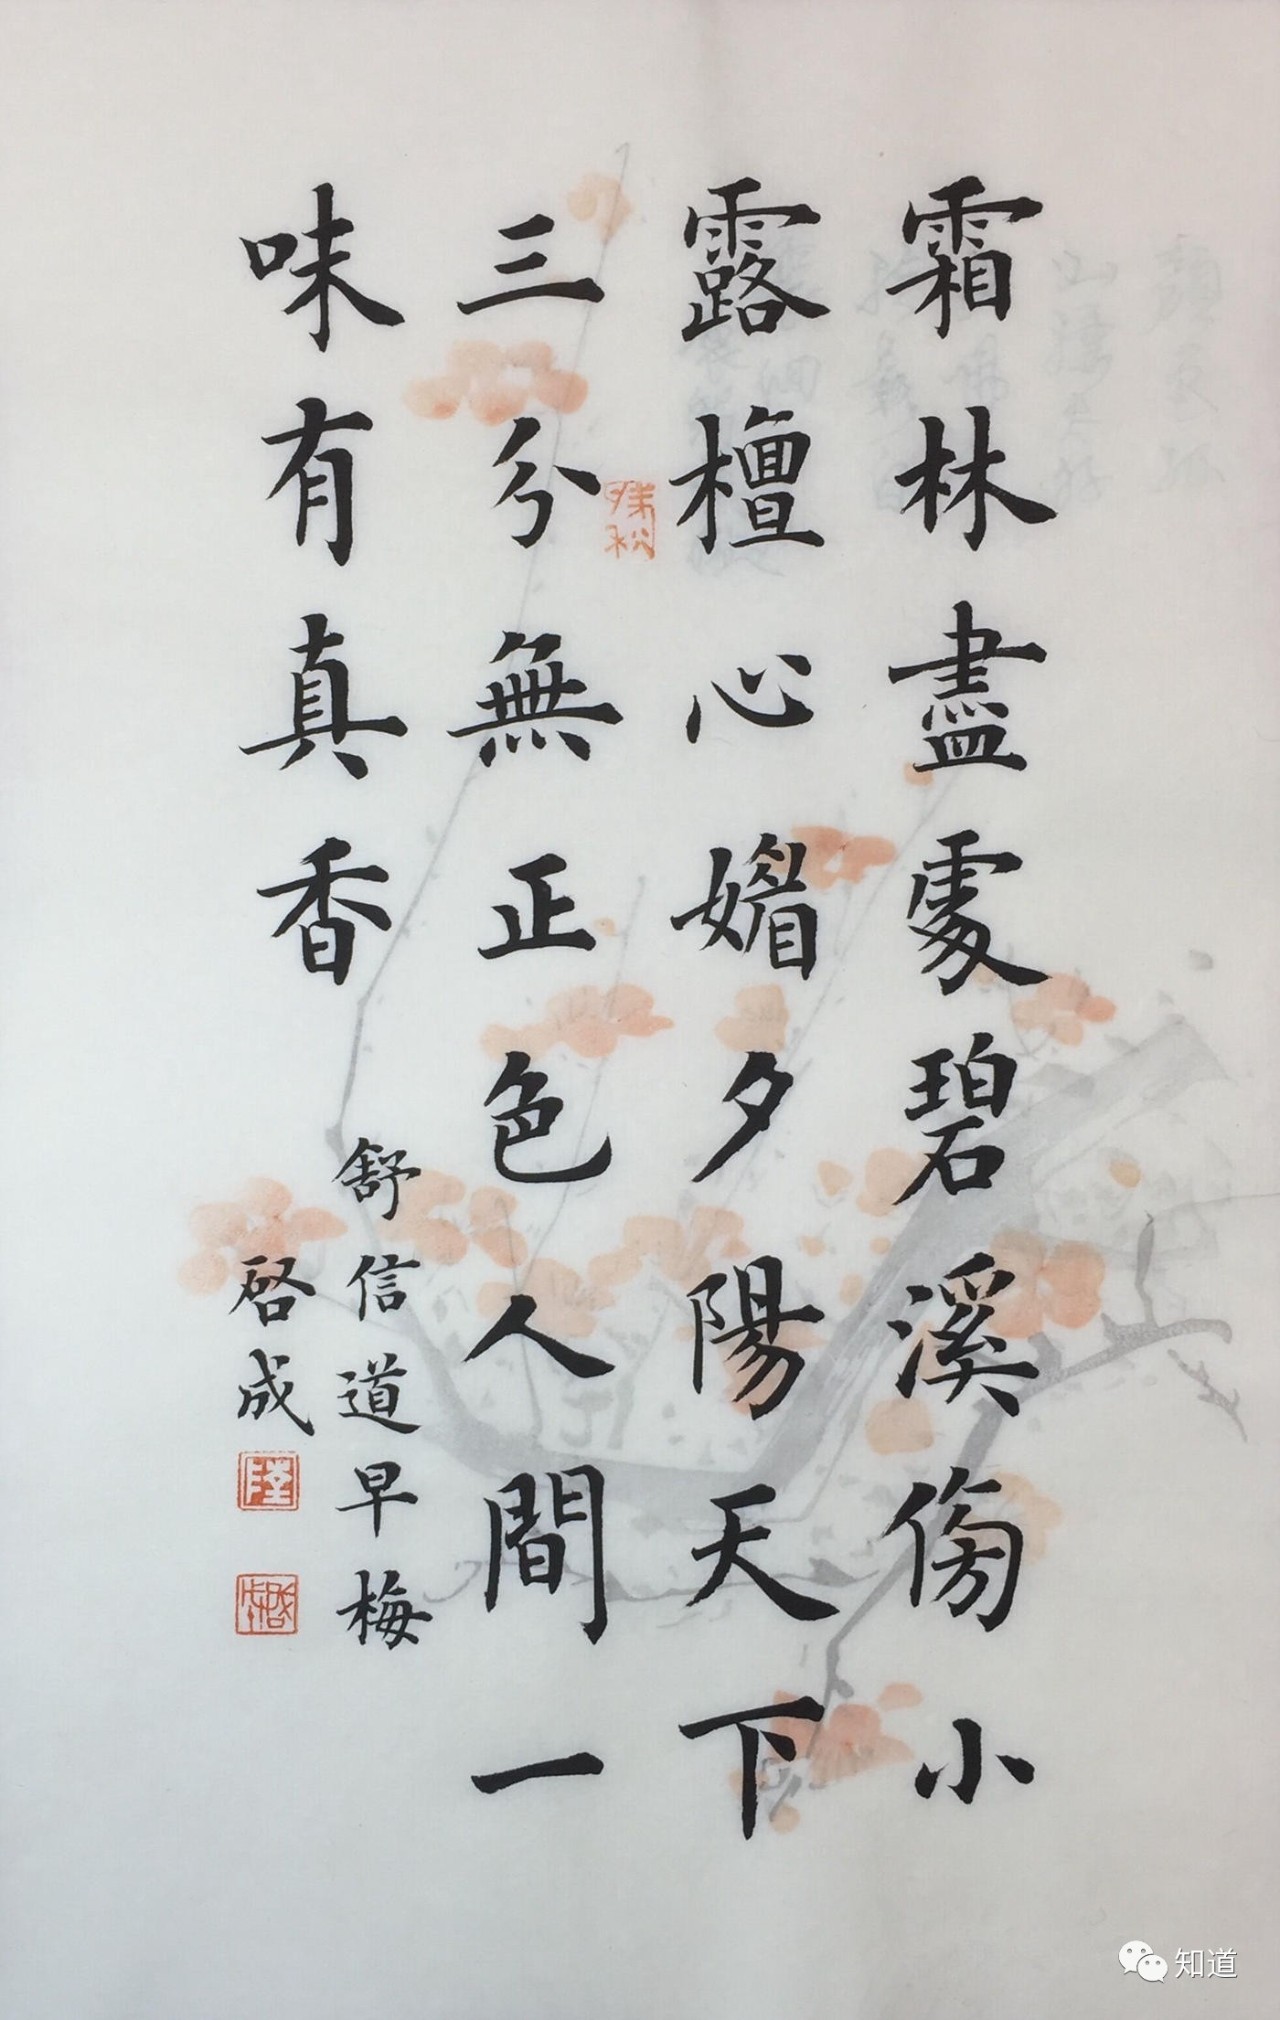 霜林盡處碧溪傍小
露檀心媚夕陽天下
三分無正色人間一
味有真香
舒信道早梅
啓成
知道